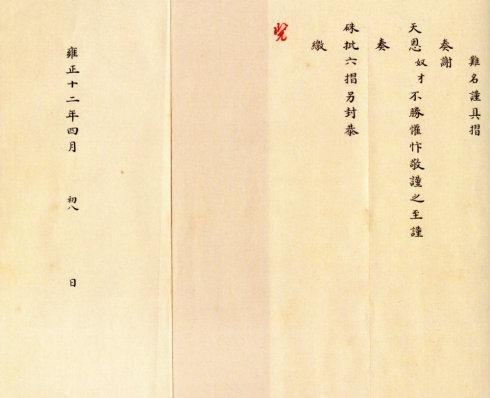 難名謹具摺
奏謝
天恩奴才不勝惟忭敬謹之至謹
奏
硃批六摺另封恭
繳
覧
雍正十二年四月 初八 日